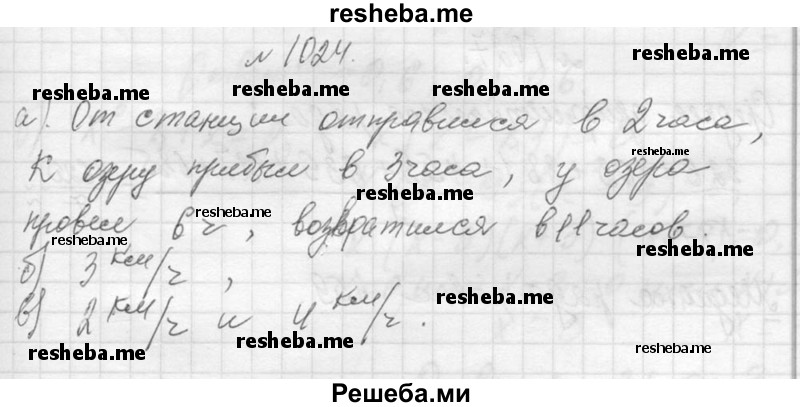 resheba.me
№ 1024.
resheba.me
resheba.me resheba.me resheba.me
а). От станции отправился в 2 часа,
resheba.me
к озеру прибыл в 3 часа, у озера
resheba.me
провел 6 ч, возвратился в 11 часов.
resheba.me
resheba.me
resheba.me
б) 3 км/ч,
resheba.me
в) 2 км/ч и 4 км/ч.
resheba.me
resheba.me
resheba.me
Решеба.ми